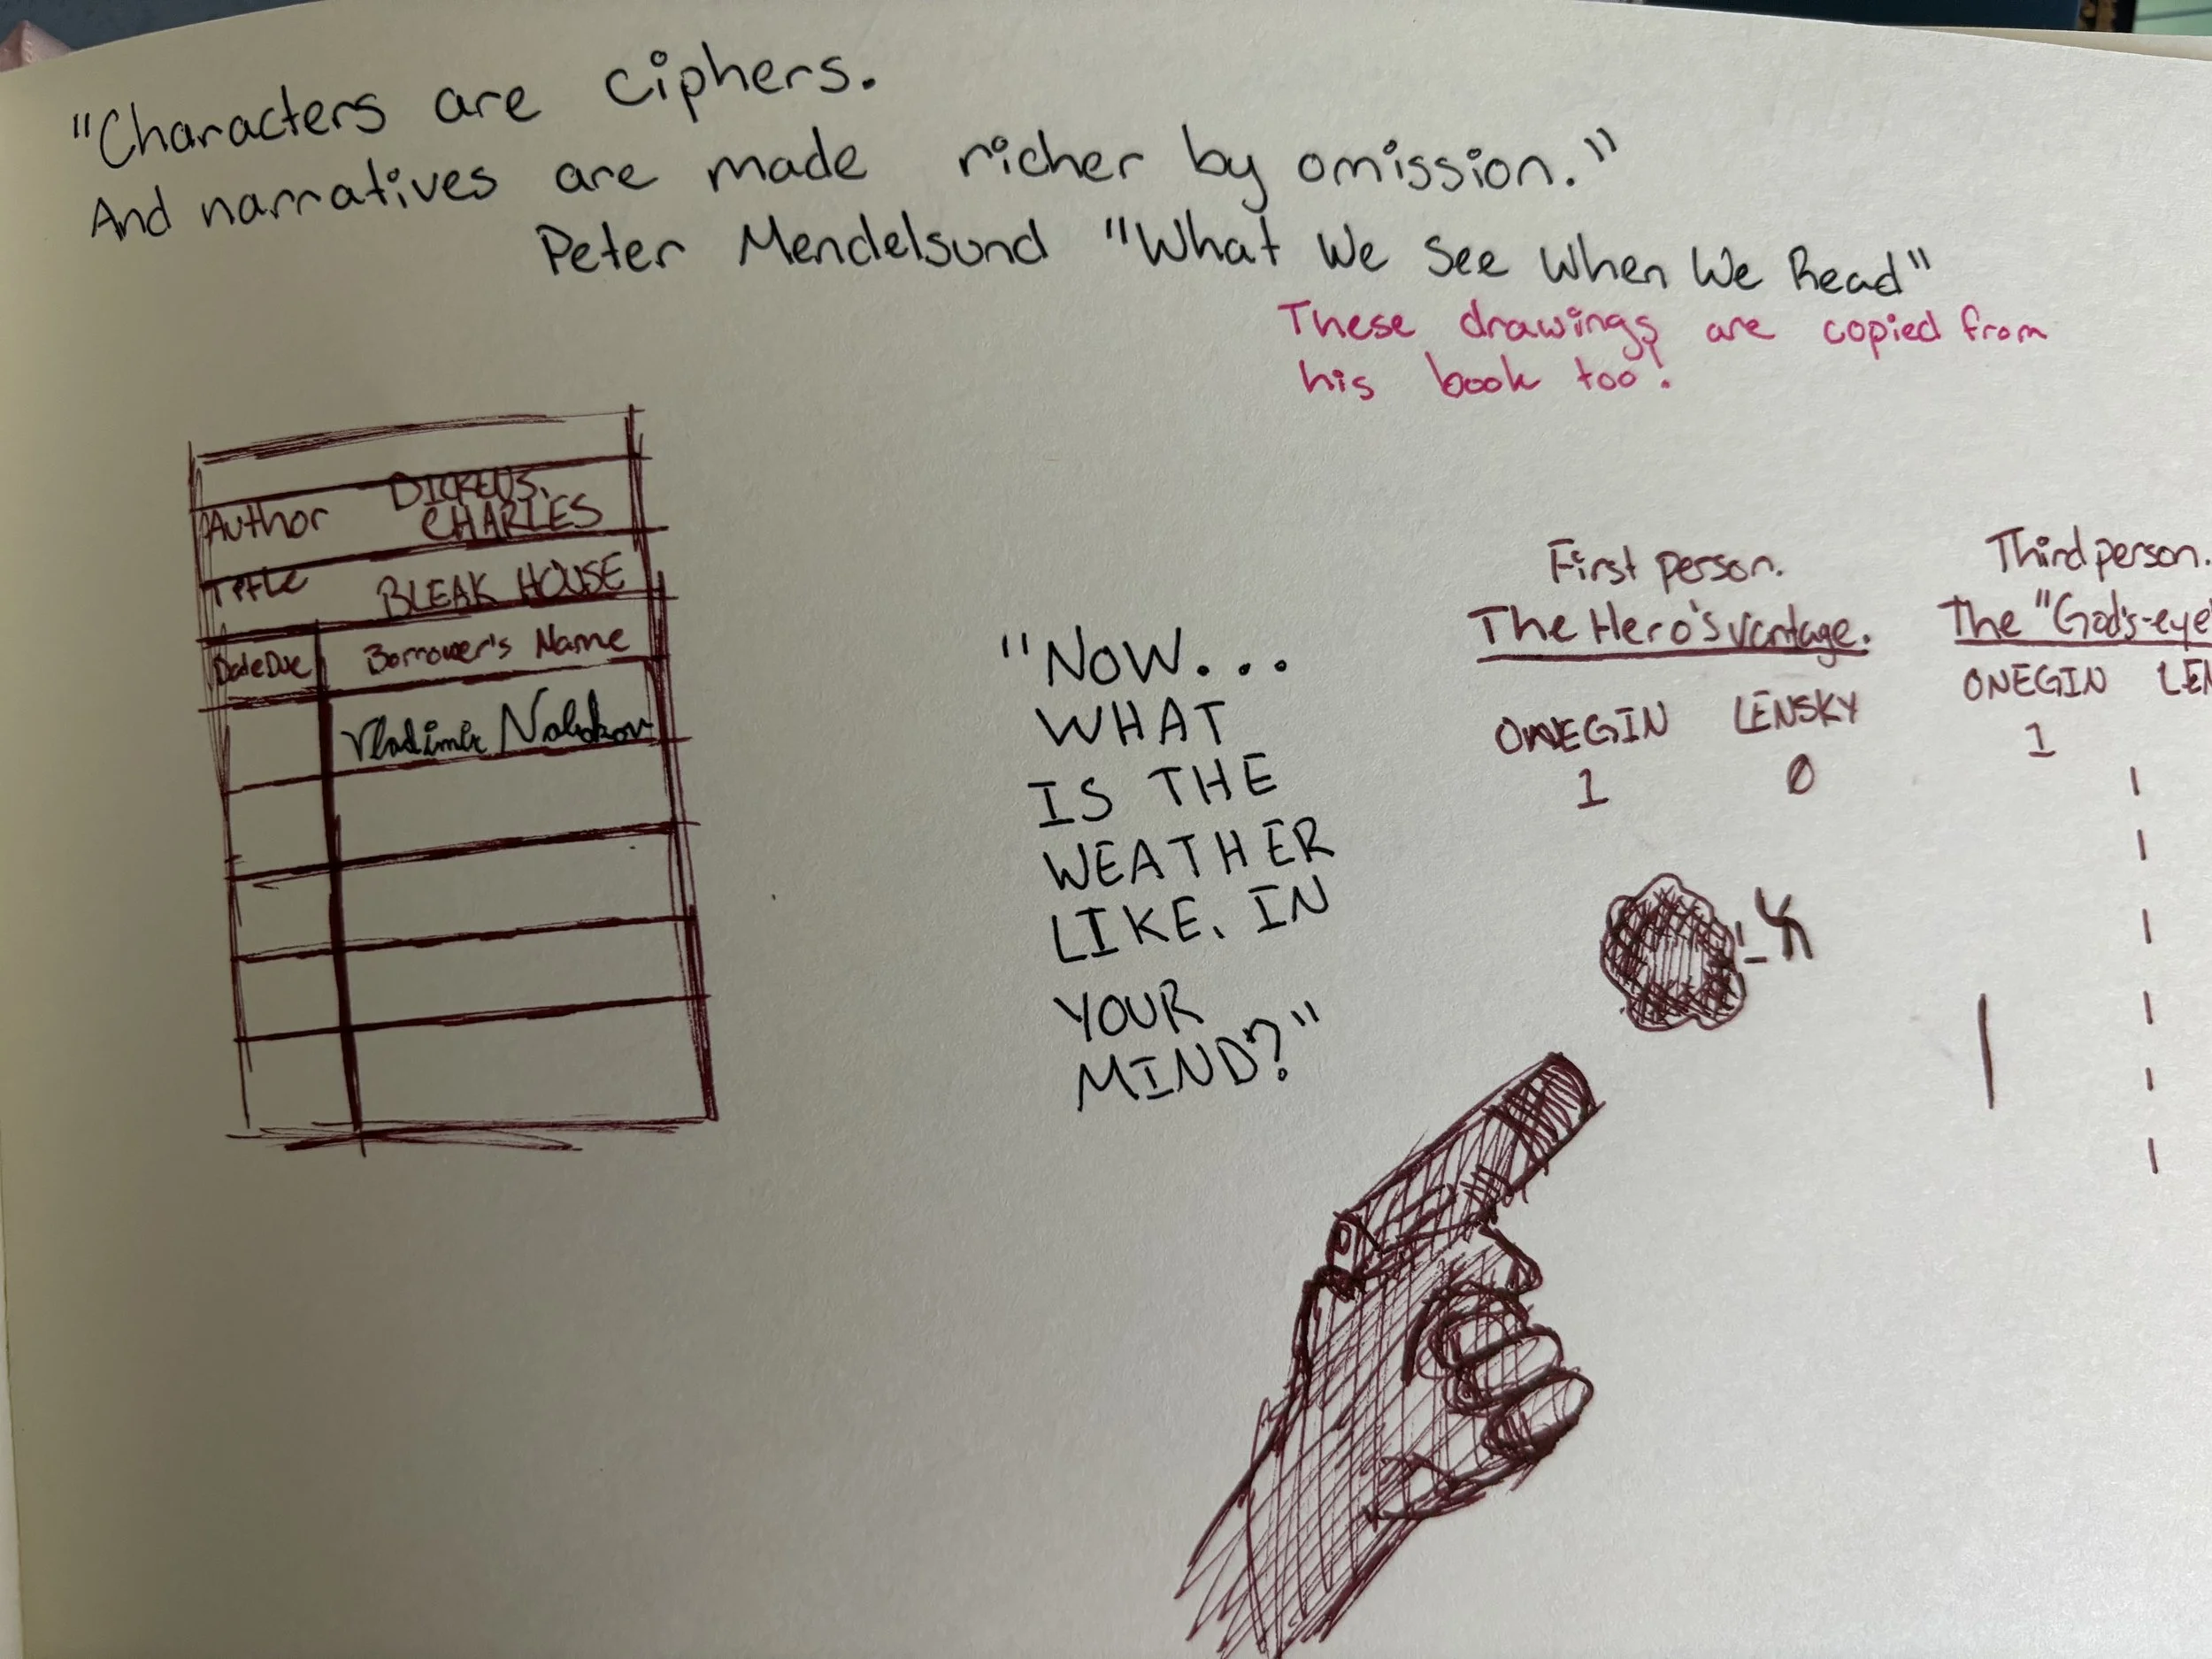 "Characters are ciphers.
And narratives are made richer by omission."
Peter Mendelsund "What We See When We Read"
These drawings are copied from
his book too!
Author DICKENS,
CHARLES
Title BLEAK HOUSE
Date Due Borrower's Name
Vladimir Nabokov
"NOW...
WHAT
IS THE
WEATHER
LIKE, IN
YOUR
MIND?"
First person.
The Hero's vantage.
ONEGIN LENSKY
1 0
Third person.
The "God's-eye"
ONEGIN LEN
1